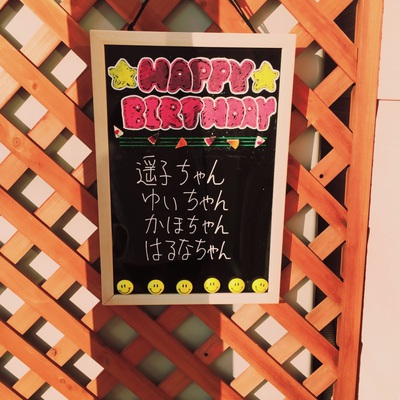 HAPPY
BIRTHDAY
遥子ちゃん
ゆいちゃん
かほちゃん
はるなちゃん